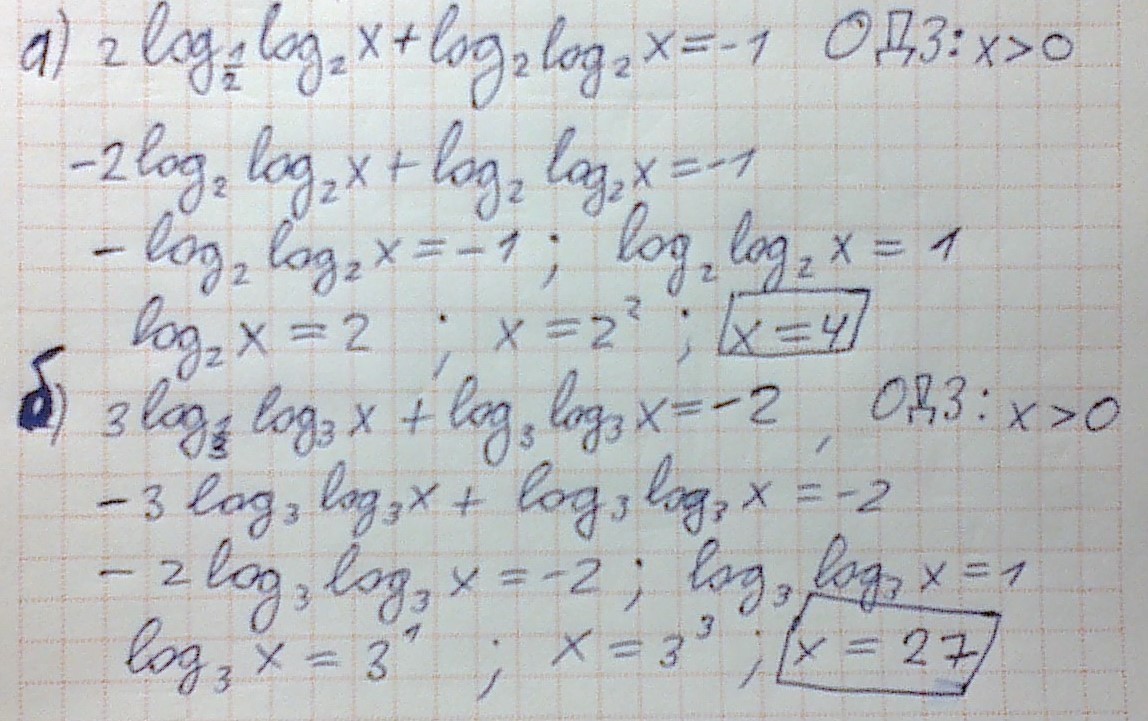 а) 2 log_{1/2} log₂ x + log₂ log₂ x = -1 ОДЗ: x > 0
-2 log₂ log₂ x + log₂ log₂ x = -1
- log₂ log₂ x = -1 ; log₂ log₂ x = 1
log₂ x = 2 ; x = 2² ; x = 4
б) 3 log_{1/3} log₃ x + log₃ log₃ x = -2 , ОДЗ: x > 0
-3 log₃ log₃ x + log₃ log₃ x = -2
- 2 log₃ log₃ x = -2 ; log₃ log₃ x = 1
log₃ x = 3¹ ; x = 3³ ; x = 27